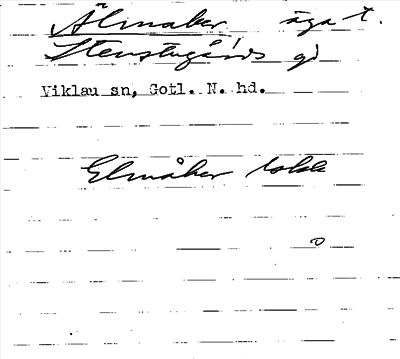 Älmaker, äga t.
Stenstugårds gd
Viklau sn, Gotl. N. hd.
Elmåker